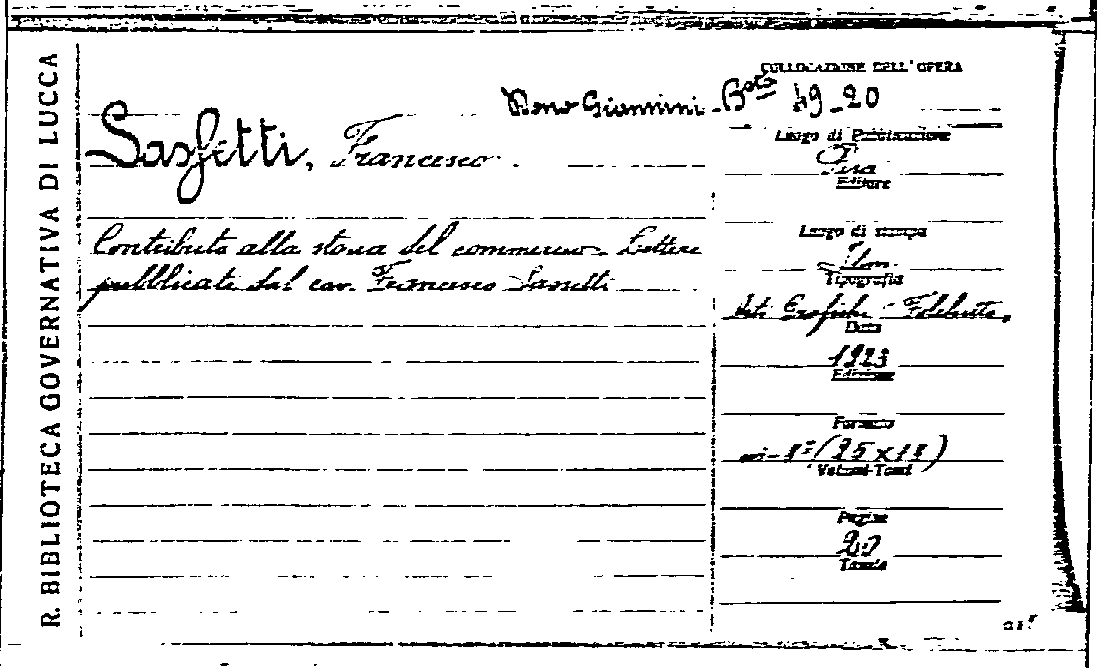 R. BIBLIOTECA GOVERNATIVA DI LUCCA
COLLOCAZIONE DELL' OPERA
Giannini - 49_20
Sasfetti, Francesco
Contributo alla storia del commercio - Lettere
pubblicate dal cav. Francesco
Luogo di Pubblicazione
Editore
Luogo di stampa
Tipografia
Arti Grafiche
Data
1923
Edizione
Formato
in-8º (25 x 18)
Volumi-Tomi
Pagine
20
Tavole